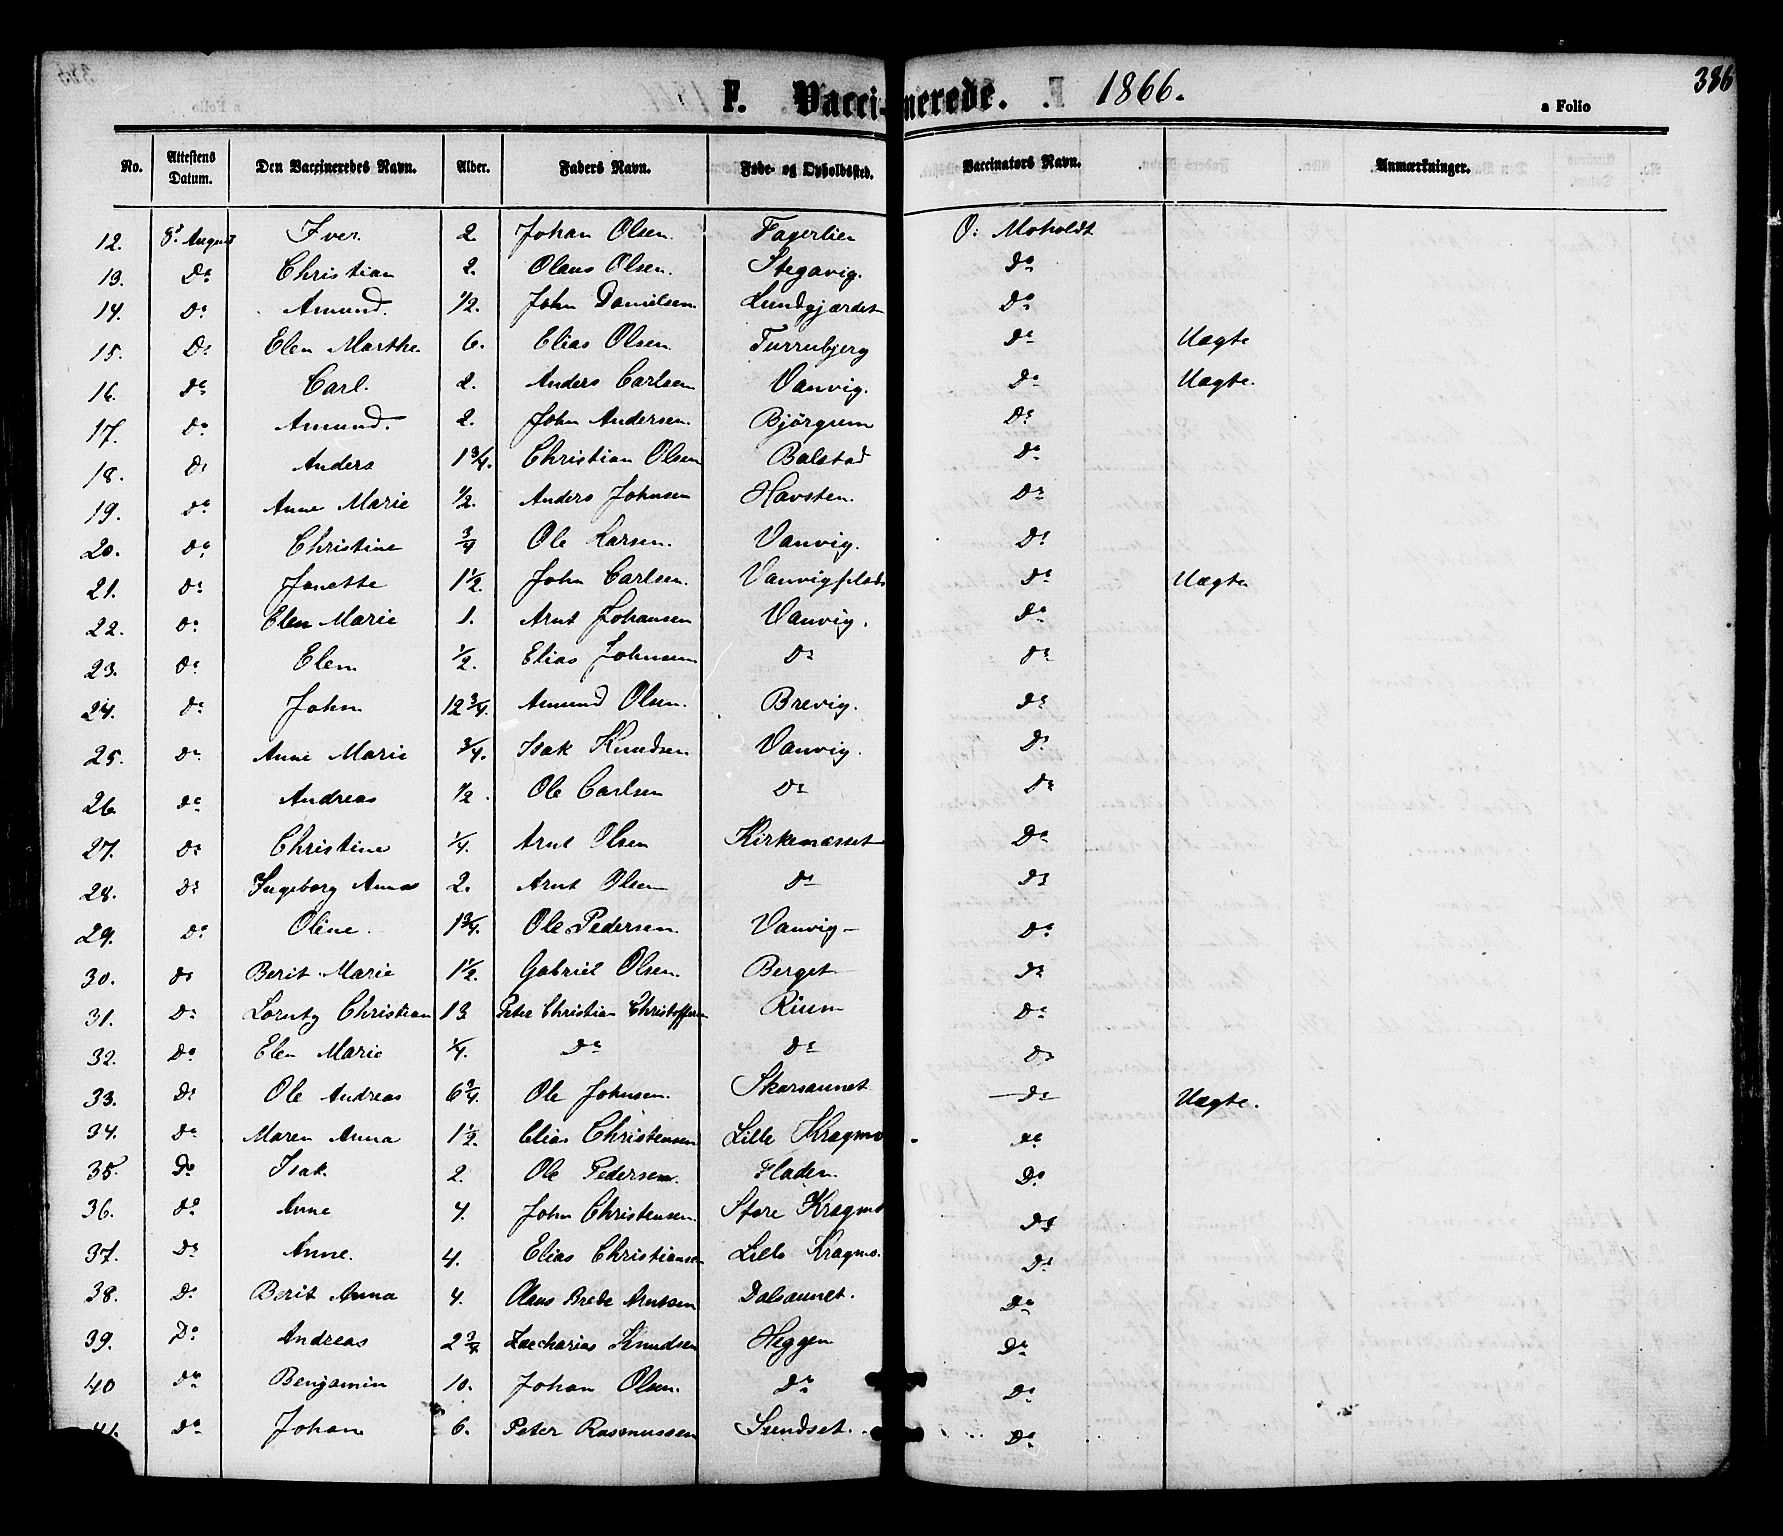 F. Vaccinerede. 1866. 386
a Folio
No. Attestens Datum. Den Vaccineredes Navn. Alder. Faders Navn. Føde- og Opholdssted. Vaccinators Navn. Anmærkninger.
12. 8d August Iver. 2 Johan Olsen. Fagerlien O: Moholdt
13. Do Christian 2. Olaus Olsen. Stegavig. Do
14. Do Amund. 1/2. John Danielsen Lundgjærdet Do
15. Do Elen Marthe 6. Elias Olsen Turrubjerg Do Uægte
16. Do Carl. 2. Anders Carlsen Vanvig. Do Uægte.
17. Do Amund. 2. John Andersen. Bjørgum Do
18. Do Anders 1 3/4. Christian Olsen Balstad Do
19. Do Anne Marie 1/2. Anders Johnsen Havsten. Do
20. Do Christine 3/4 Ole Larsen. Vanvig. Do
21. Do Janette 1 1/2. John Carlsen. Vanvigplads Do Uægte
22. Do Elen Marie 1. Arnt Johansen Vanvig. Do
23. Do Elen 1/2. Elias Johnsen Do Do
24. Do John 12 3/4. Amund Olsen. Brevig. Do
25. Do Anne Marie 3/4. Isak Knudsen Vanvig. Do
26 Do Andreas 1/2. Ole Carlsen Do Do
27. Do Christine 1/4. Arnt Olsen Kirkenæsset Do
28. Do Ingeborg Anna 2. Arnt Olsen Do Do
29. Do Oline. 1 3/4. Ole Pedersen Vanvig Do
30. Do Berit Marie 1 1/2. Gabriel Olsen. Berget Do
31. Do Lorntz Christian 13 Peter Christian Christoffersen Rium Do
32. Do Elen Marie 1/4. Do Do Do
33. Do Ole Andreas 6 3/4. Ole Johnsen. Skarsaunet Do Uægte.
34. Do Maren Anna 1 1/2. Elias Christensen Lille Kragmo. Do
35. Do Isak 2. Ole Pedersen. Fladen. Do
36. Do Anne 4. John Christensen. Store Kragmo Do
37. Do Anne. 4. Elias Christiansen Lille Kragmo. Do
38. Do Berit Anna 4. Olaus Brede Arntsen Dalsaunet. Do
39. Do Andreas 2 3/4 Zaccharias Knudsen Heggen Do
40 Do Benjamin 10. Johan Olsen. Do Do
41. Do Johan 6. Peter Rasmussen Sundset. Do